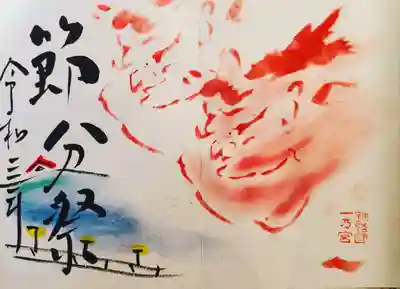 節分祭
令和三年
一乃宮